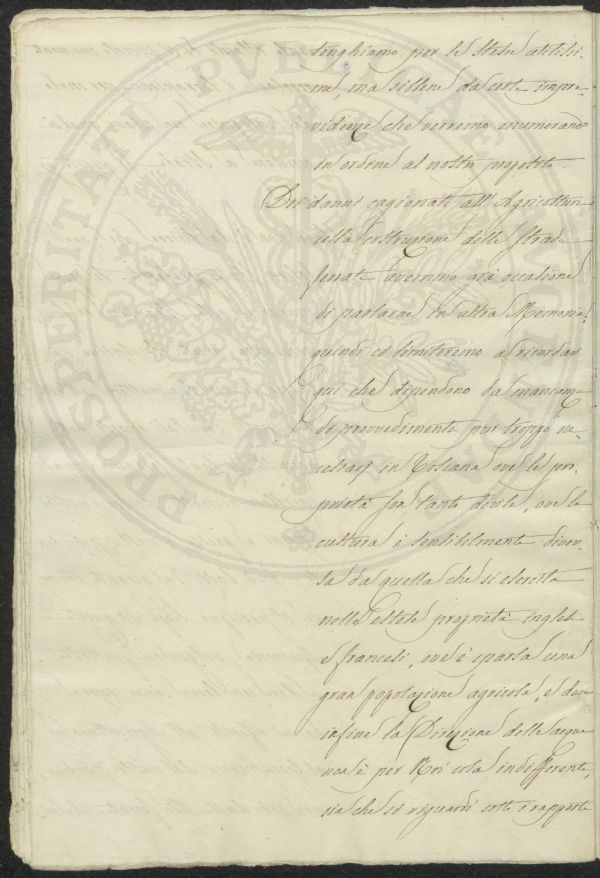 PROSPERITATI PVBLICAE
tenghiamo per le stesse utilissi
me, ma sibbene da certe impre-
videnze che verremo enumerando
in ordine al nostro proposito.
Dei danni cagionati all'Agricoltura
dalla costruzione delle strade
ferrate avemmo già occasione
di parlarne in altra Memoria;
quindi ci limiteremo a ricordar
qui che dipendono da mancan-
di provvedimenti pur troppo ne-
cessarj in Toscana ove le pro-
prietà son tanto divise, ove la
cultura è sensibilmente diver-
sa da quella che si esercita
nelle estese proprietà inglesi
e francesi, ove è sparsa una
gran popolazione agricola, e dove
infine la Direzione delle acque
non è per Noi cosa indifferente,
sia che si riguardi sotto i rapporti